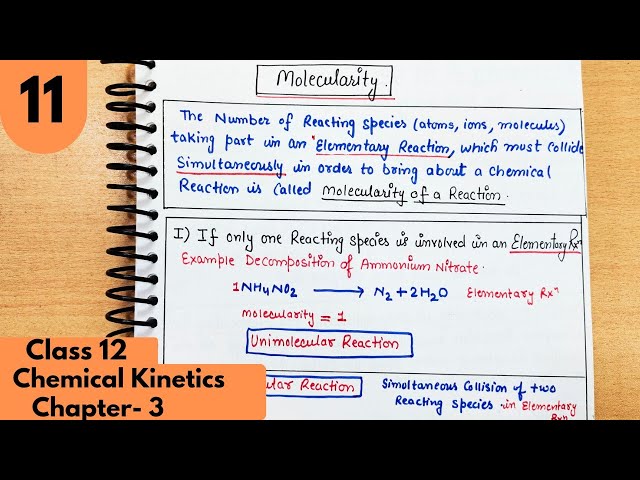 11
Molecularity.
The Number of Reacting species (atoms, ions, molecules)
taking part in an Elementary Reaction, which must collide
Simultaneously in order to bring about a chemical
Reaction is called molecularity of a Reaction.
I) If only one Reacting species is involved in an Elementary Rxn
Example Decomposition of Ammonium Nitrate.
1NH4NO2 → N2 + 2H2O Elementary Rxn
molecularity = 1
Unimolecular Reaction
Class 12
Chemical Kinetics
Chapter- 3
ular Reaction
Simultaneous Collision of two
Reacting species in Elementary
Rxn